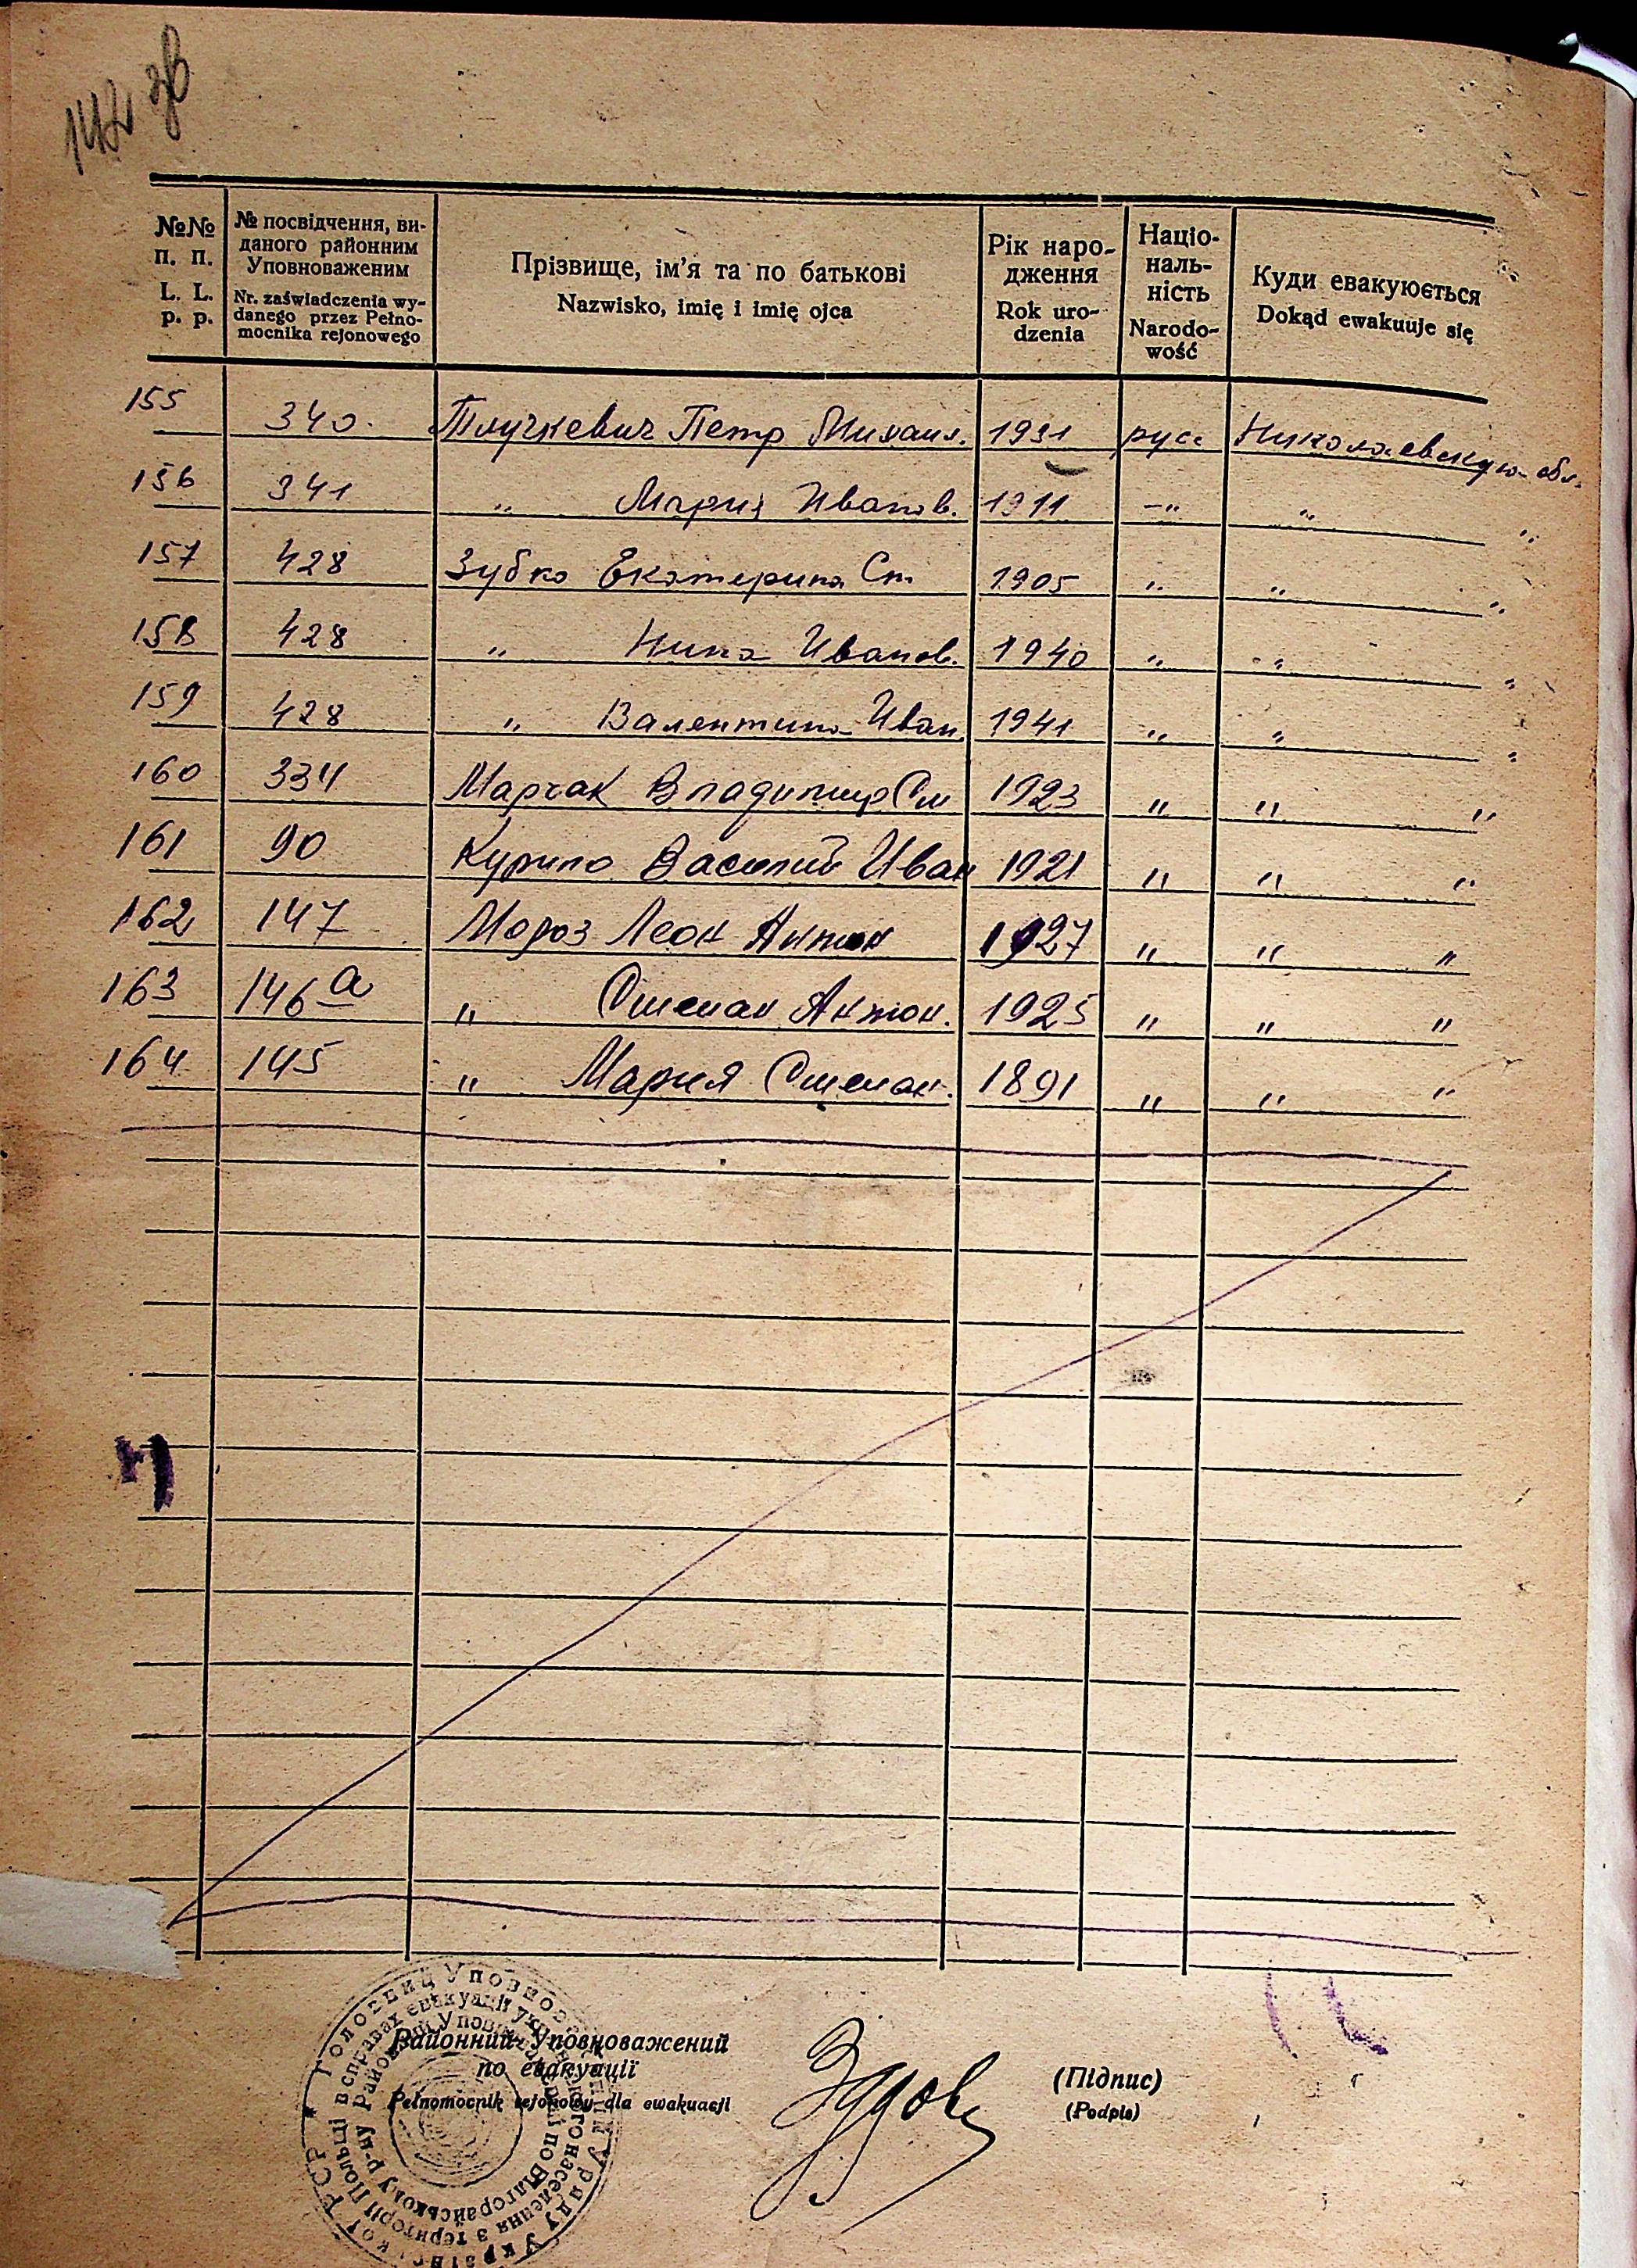 142 зв
№№ п. п. L. L. p. p.
№ посвідчення, виданого районним Уповноваженим
Nr. zaświadczenia wydanego przez Pełnomocnika rejonowego
Прізвище, ім’я та по батькові
Nazwisko, imię i imię ojca
Рік народження
Rok urodzenia
Національність
Narodowość
Куди евакуюється
Dokąd ewakuuje się
155 340. Тлучкевич Петр Михаил. 1931 русс Николаевскую обл.
156 341 " Мария Иванов. 1911 -" " "
157 428 Зубко Екатерина Ст. 1905 " " "
158 428 " Нина Иванов. 1940 " " "
159 428 " Валентина Иван. 1941 " " "
160 334 Марчак Владимир См 1923 " " "
161 90 Курило Василий Иван 1921 " " "
162 147 Мороз Леон Антон 1927 " " "
163 146а " Степан Антон. 1925 " " "
164 145 " Мария Степан. 1891 " " "
Районний Уповноважений
по евакуації
Pełnomocnik rejonowy dla ewakuacji
(Підпис)
(Podpis)
Головний Уповнов Уряду Української РСР
в справах евакуації українського населення з території Польщі
Районний Уповноваж по Білгорайському р-ну